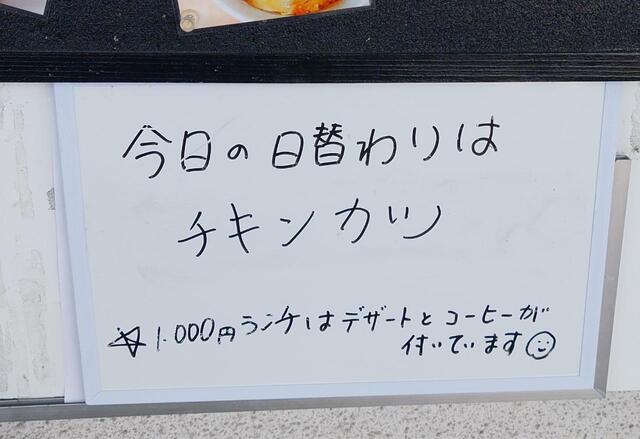 今日の日替わりは
チキンカツ
☆1.000円ランチはデザートとコーヒーが
付いています☺